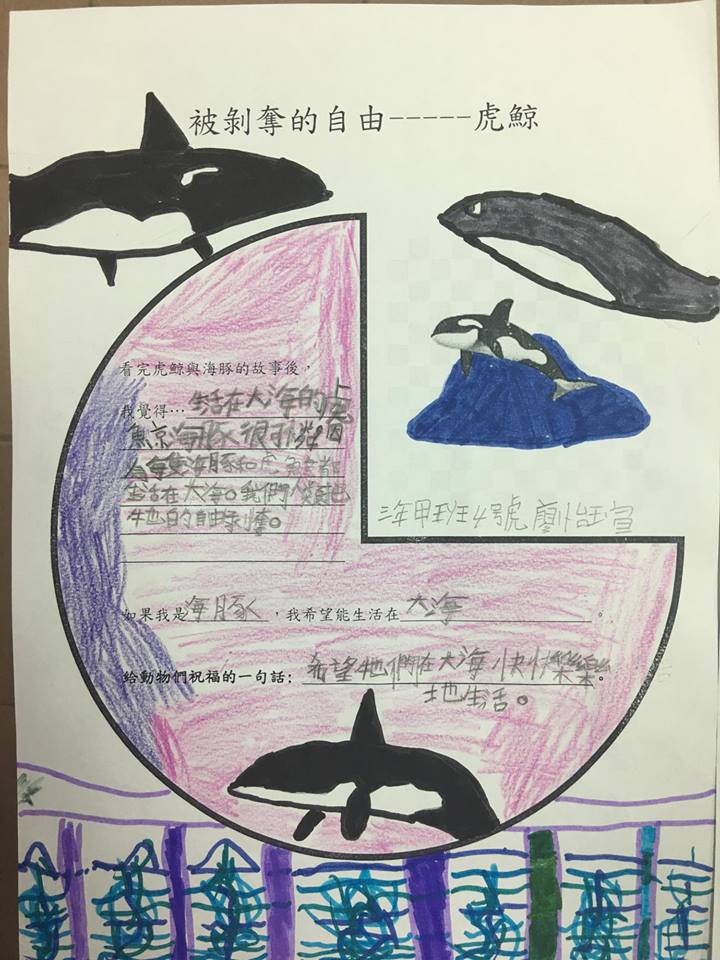 被剝奪的自由-----虎鯨
看完虎鯨與海豚的故事後，
我覺得…生活在大海的虎
鯨海豚很可憐因
為每隻海豚和虎鯨都
生活在大海。我們人類把
牠的自由剝奪。
三年甲班4號 廖怡瑄
如果我是海豚，我希望能生活在大海。
給動物們祝福的一句話：希望牠們在大海快快樂樂。
地生活。